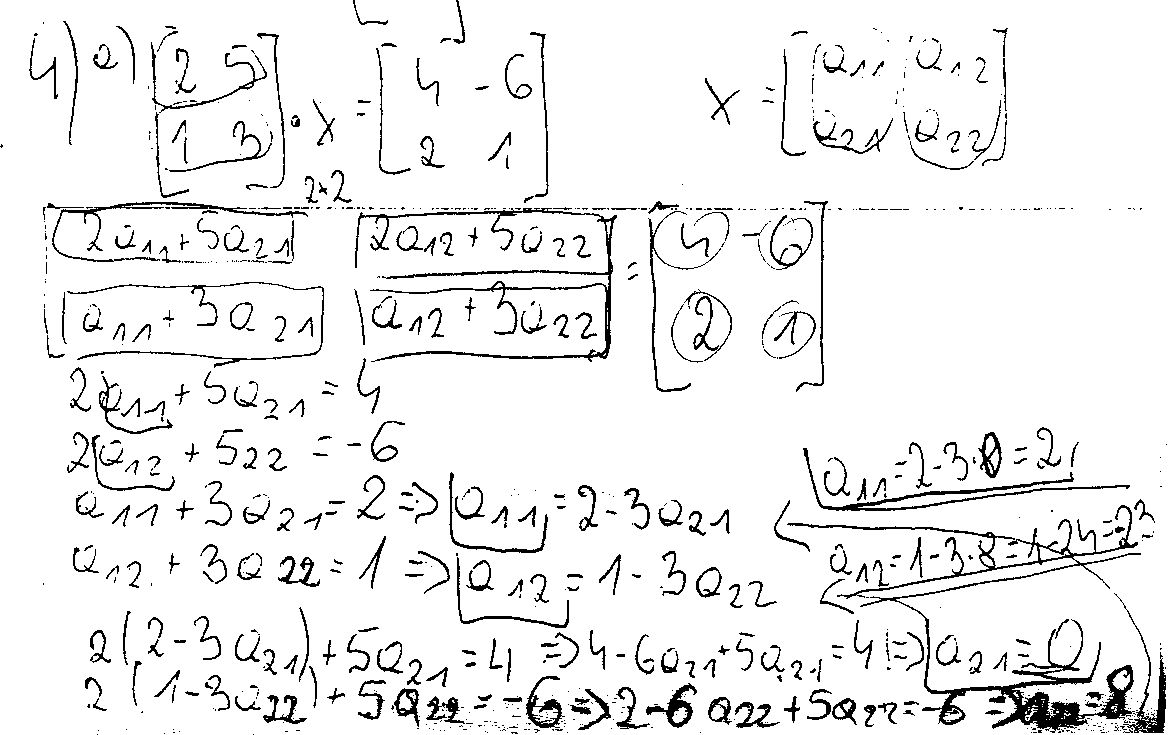 4) a) [2 5 1 3] · X = [4 -6 2 1] X = [a11 a12 a21 a22]
2×2
[2a11+5a21 2a12+5a22] = [4 -6]
[a11+3a21 a12+3a22] [2 1]
2a11+5a21=4
2a12+522=-6
a11+3a21=2 => a11=2-3a21 a11=2-3·0=2
a12+3a22=1 => a12=1-3a22 a12=1-3·8=1-24=-23
2(2-3a21)+5a21=4 => 4-6a21+5a21=4 => a21=0
2(1-3a22)+5a22=-6 => 2-6a22+5a22=-6 => a22=8